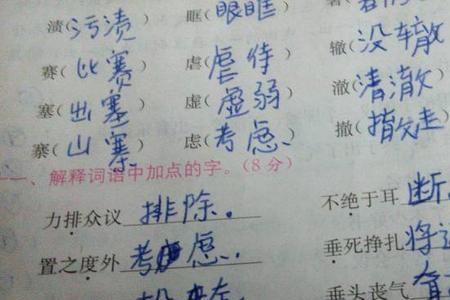 渍(污渍) 眶(眼眶)
赛(比赛) 虐(虐待) 辙(没辙)
塞(出塞) 虚(虚弱) 澈(清澈)
寨(山寨) 虑(考虑) 撤(撤走)
一、解释词语中加点的字。(8分)
力排众议 排除. 不绝于耳 断.
置之度外 考虑. 垂死挣扎 将
垂头丧气